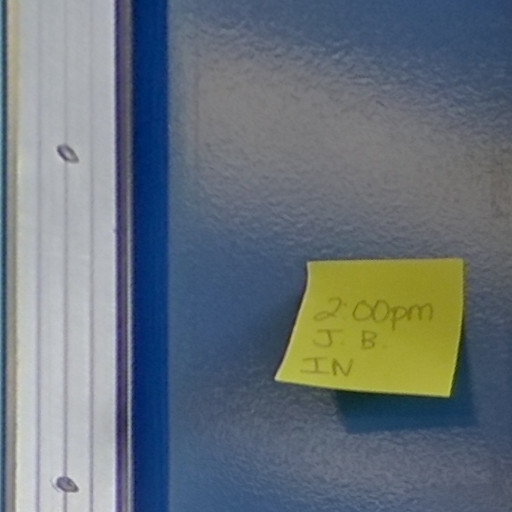 2:00pm
J. B.
IN